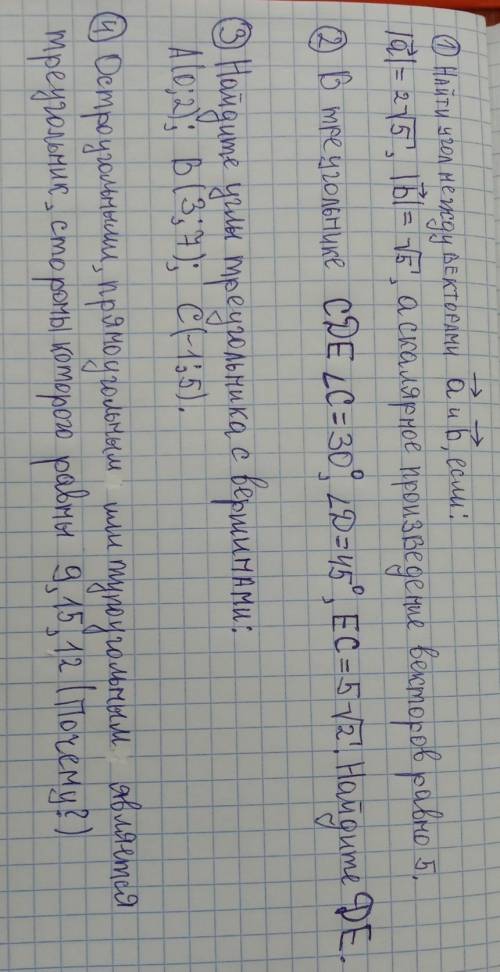 ① Найти угол между векторами a⃗ и b⃗, если:
|a⃗| = 2√5, |b⃗| = √5, а скалярное произведение векторов равно 5.
② В треугольнике CDE ∠C = 30°, ∠D = 45°, EC = 5√2. Найдите DE.
③ Найдите углы треугольника с вершинами:
A(0; 2); B(3; 7); C(-1; 5).
④ Остроугольными, прямоугольным или тупоугольным является
треугольник, стороны которого равны 9, 15, 12 (Почему?)